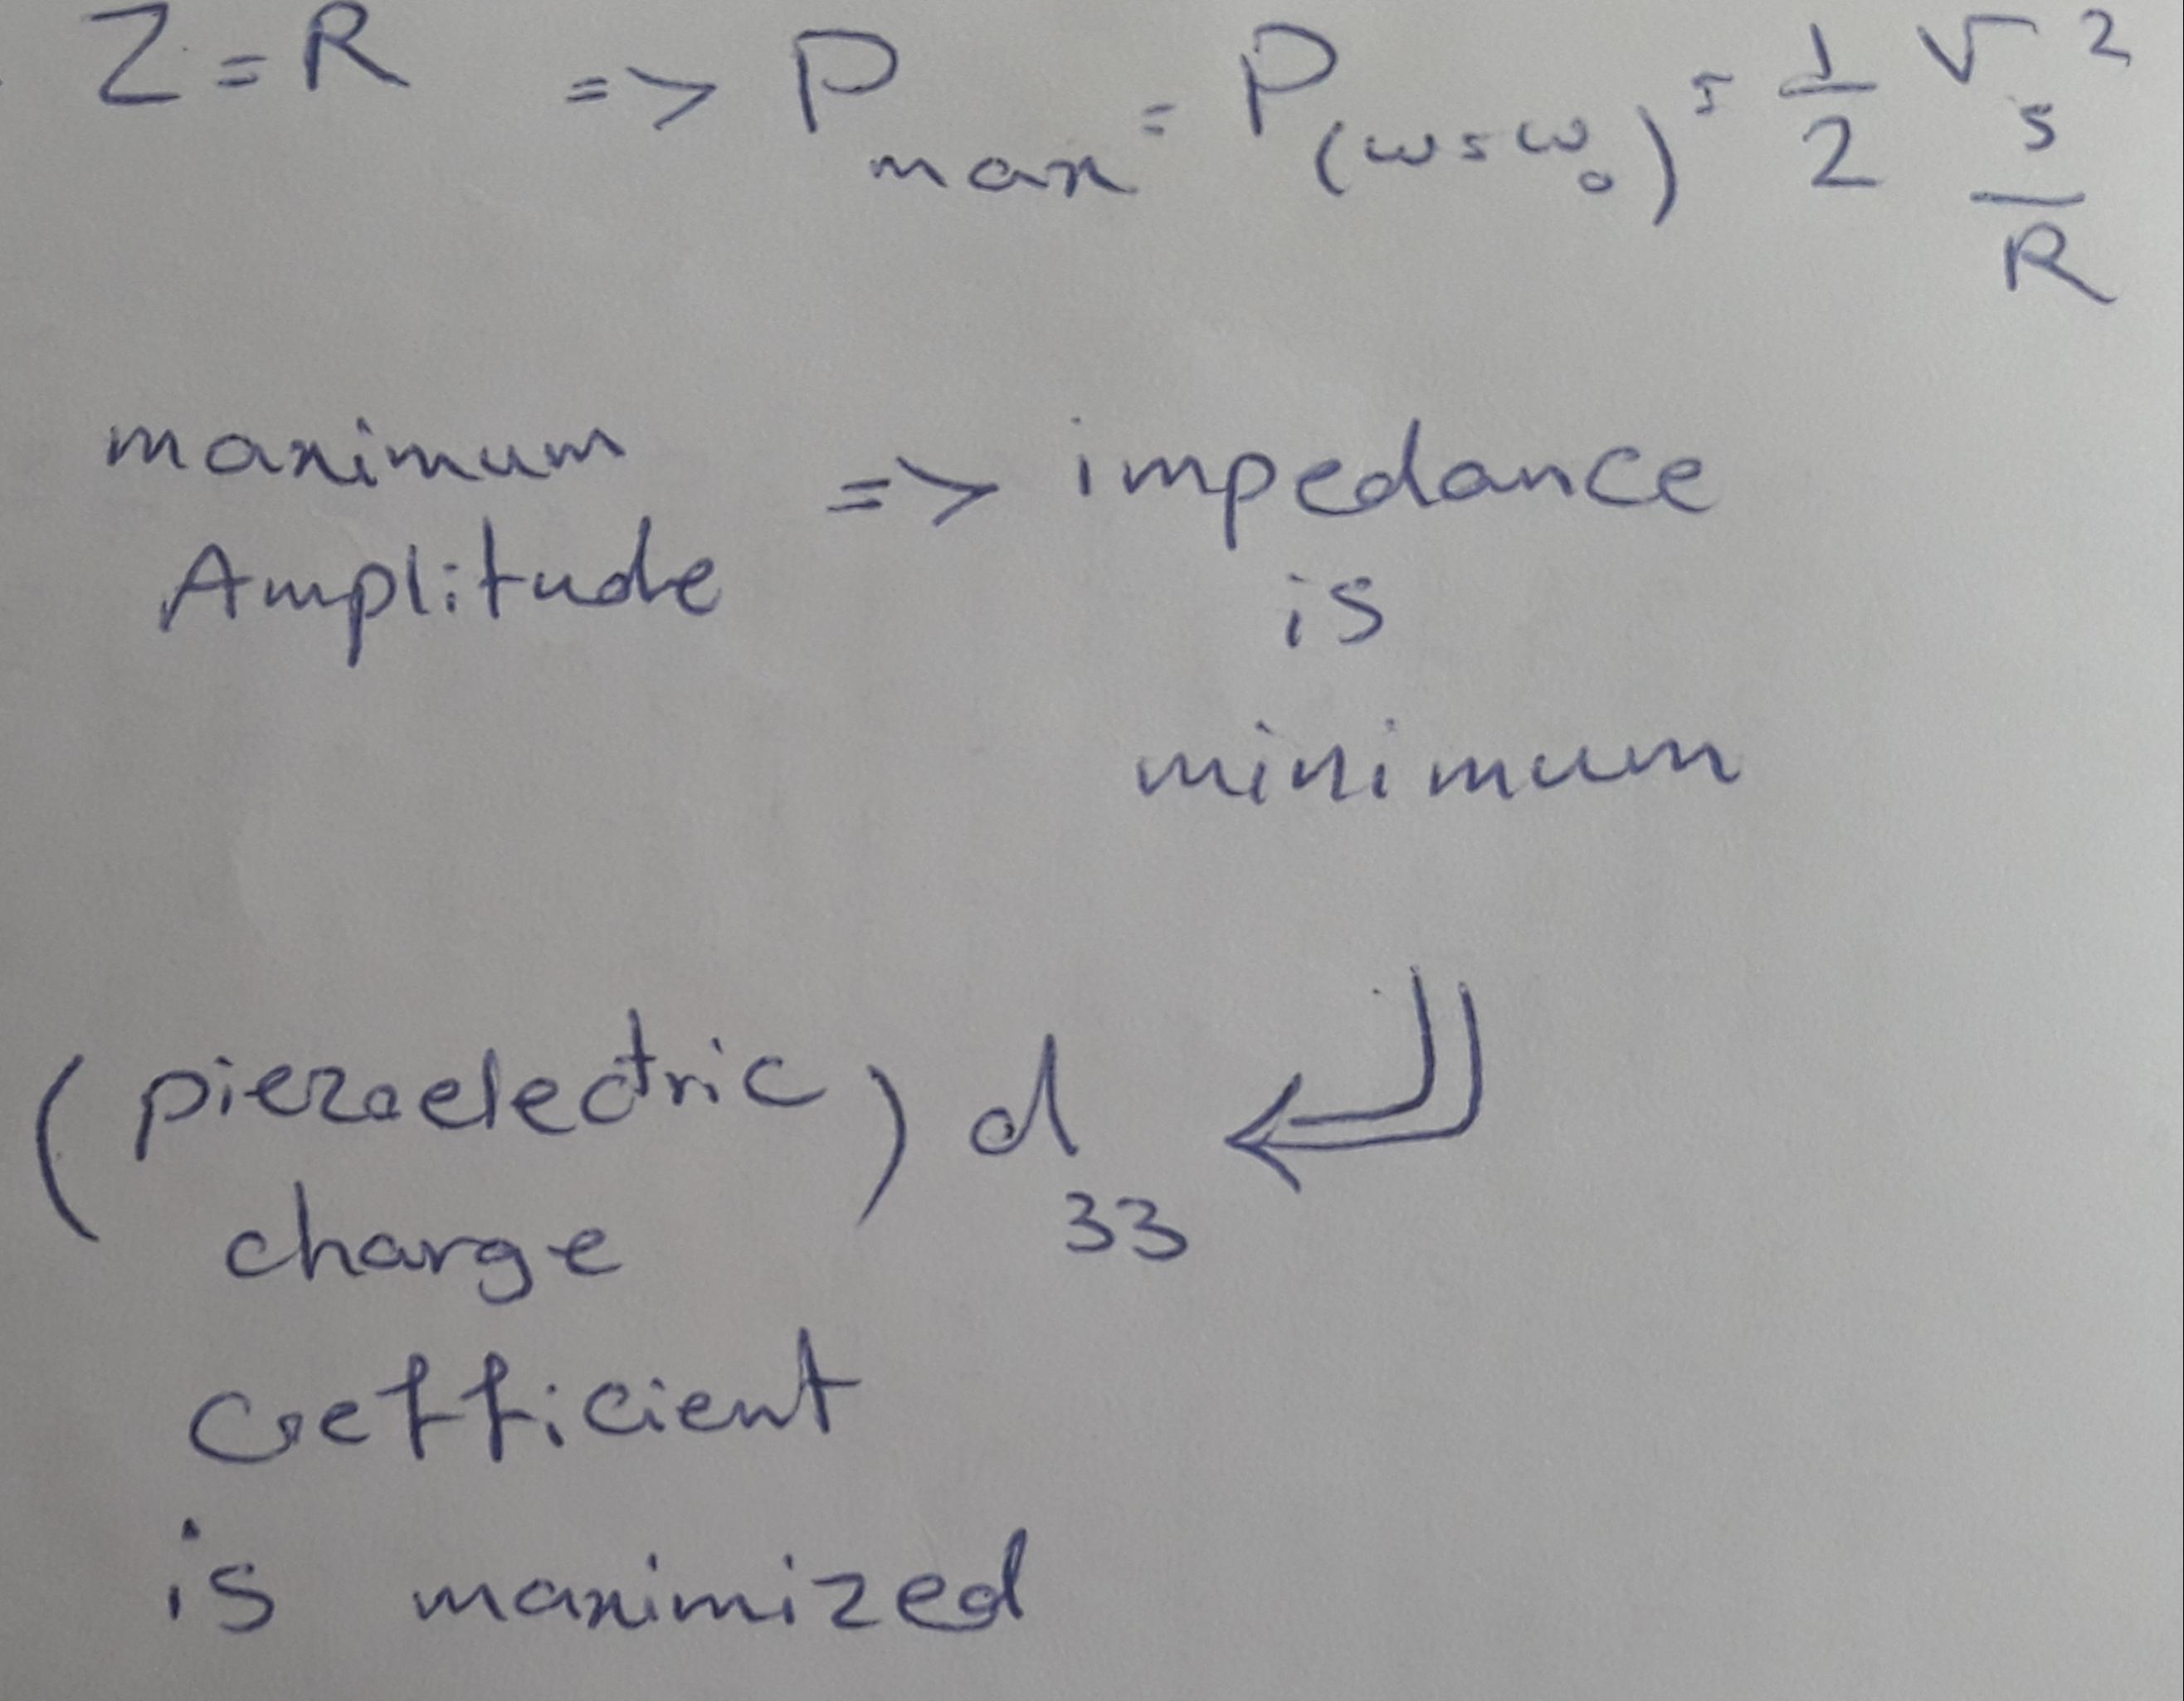 Z = R => P max = P (ω = ω₀) = 1/2 V s ² / R
maximum => impedance
Amplitude is
minimum
(piezoelectric) d 33 ⇐
charge
coefficient
is maximized